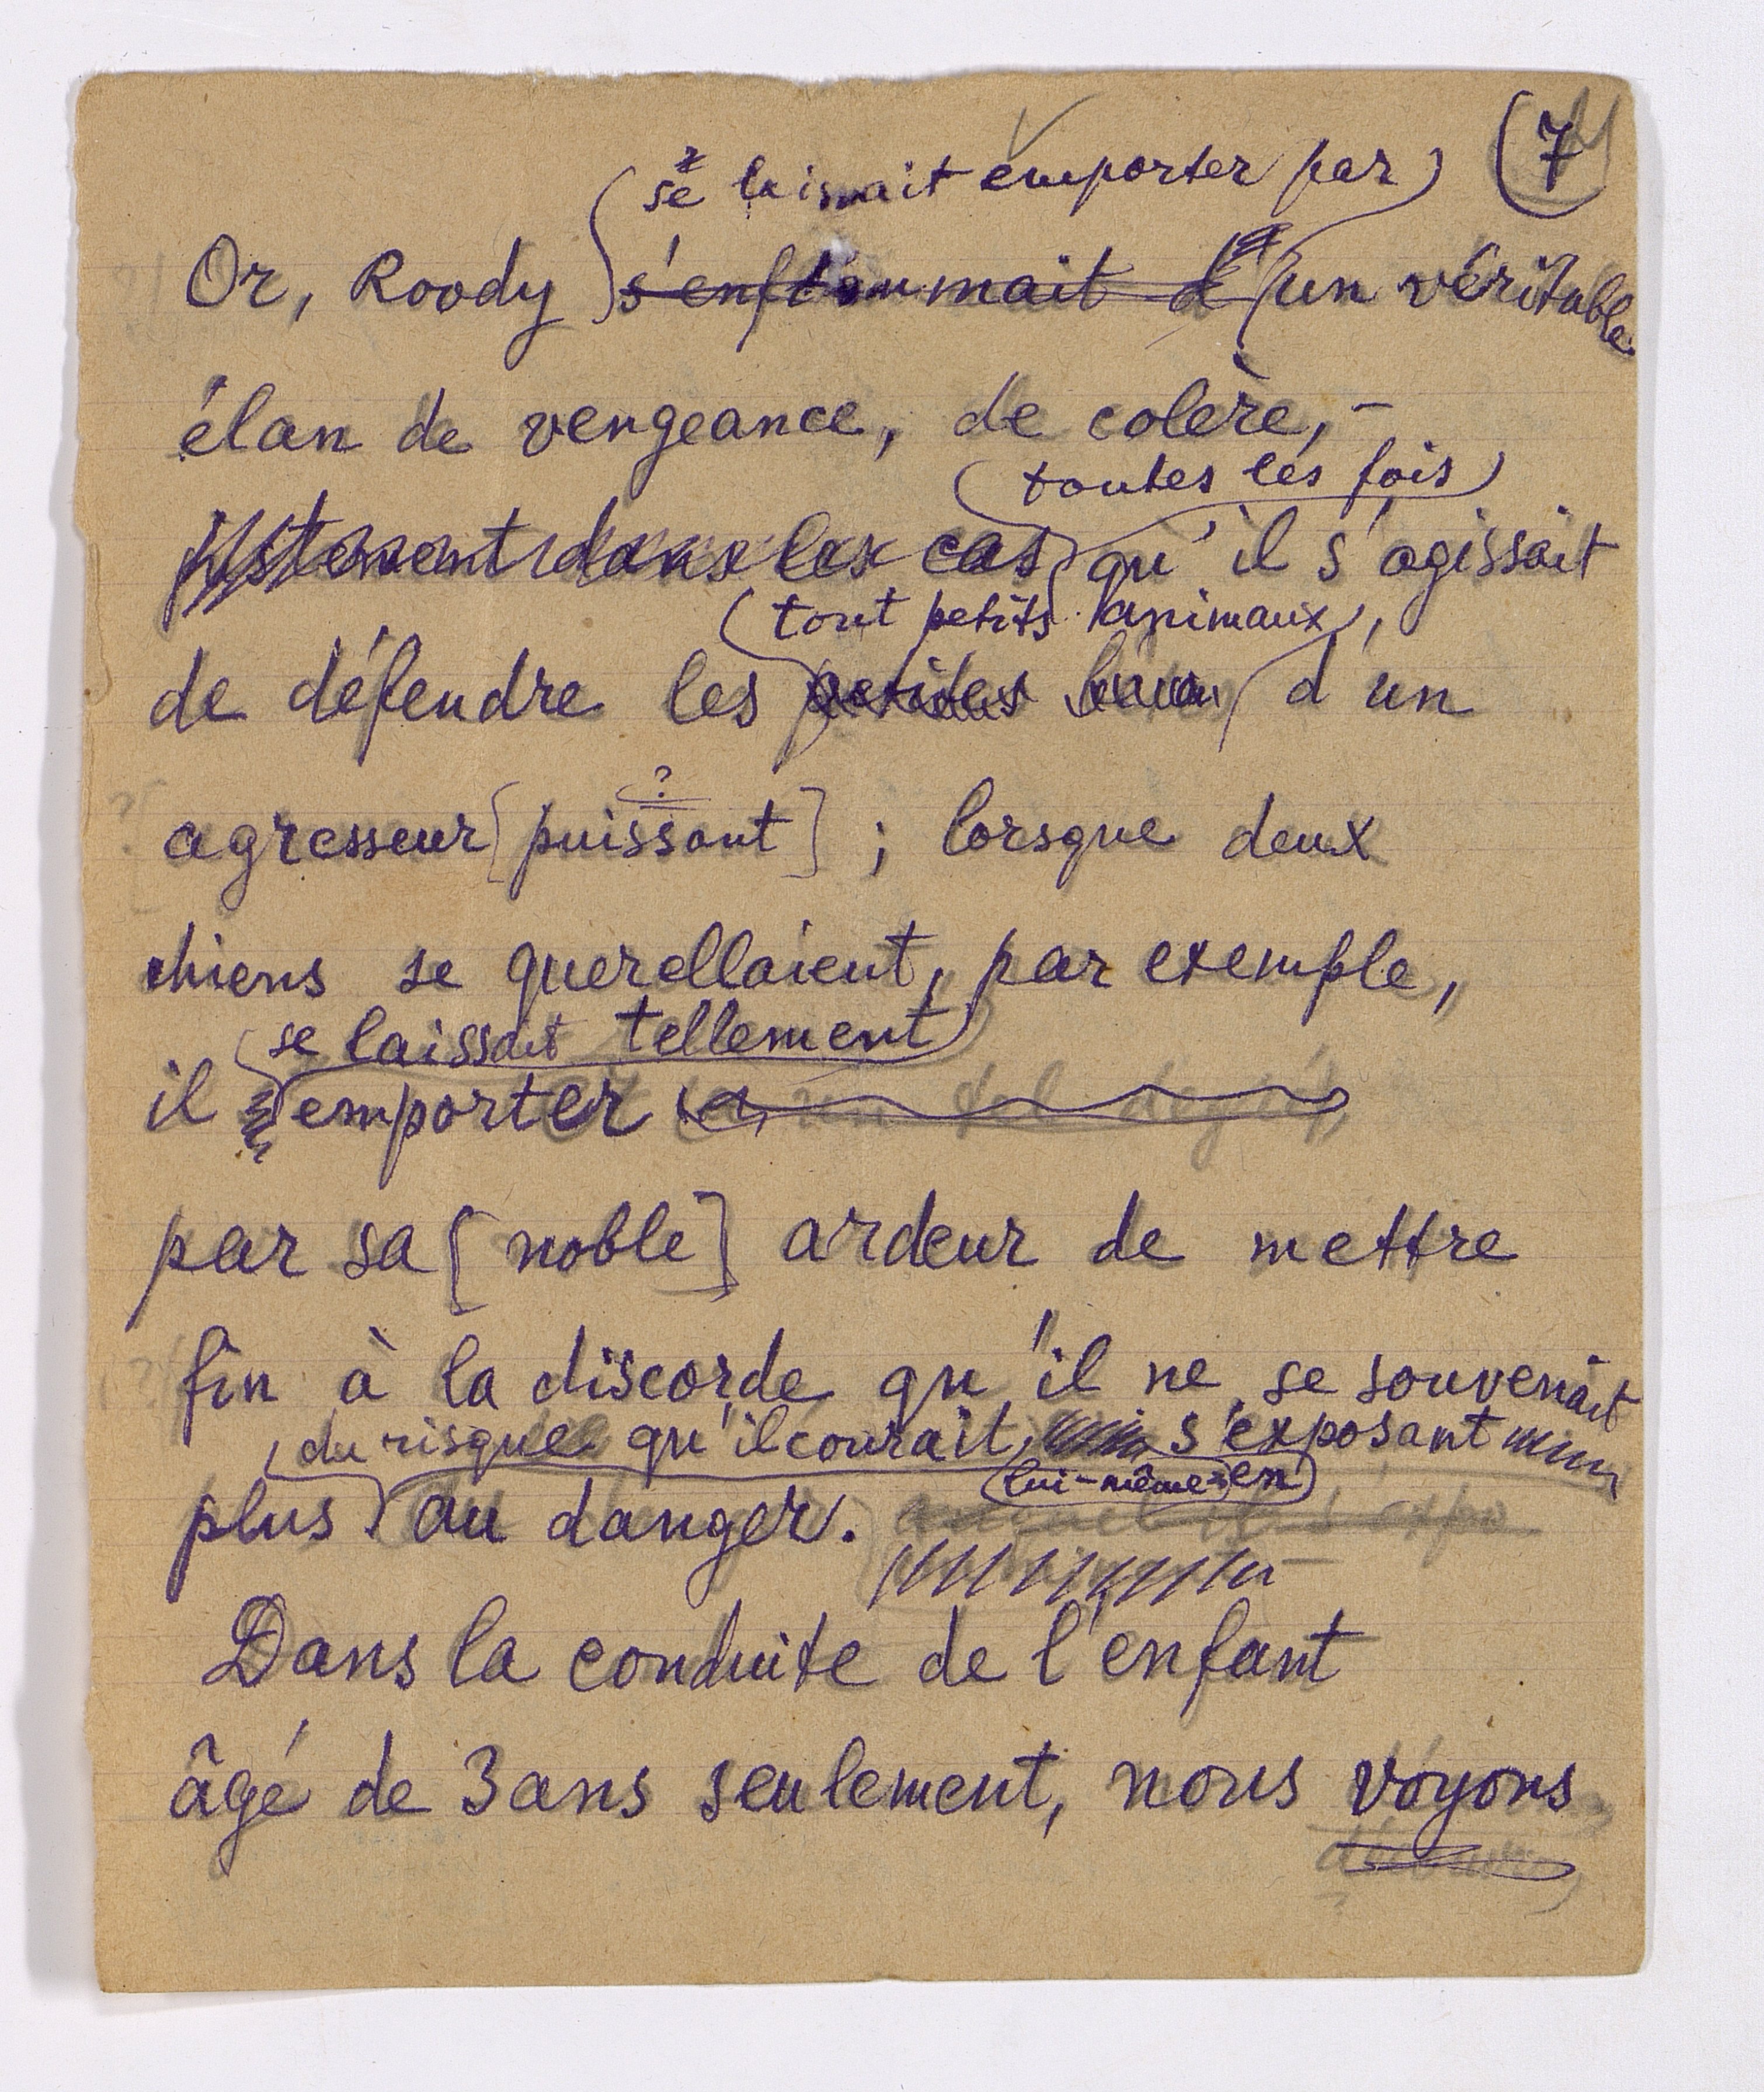 (7
(se laissait emporter par)
Or, Roody s'enflammait d'un véritable
élan de vengeance, de colère, –
(toutes les fois)
justement dans les cas qu'il s'agissait
(tout petits animaux),
de défendre les petites d'un
?
agresseur [puissant] ; lorsque deux
chiens se querellaient, par exemple,
(se laissait tellement)
il emporter à un tel degré
par sa [noble] ardeur de mettre
fin à la discorde qu'il ne se souvenait
(du risque qu'il courait, s'exposant
(lui-même en)
plus au danger. auquel il s'expo
Dans la conduite de l'enfant
âgé de 3 ans seulement, nous voyons
?